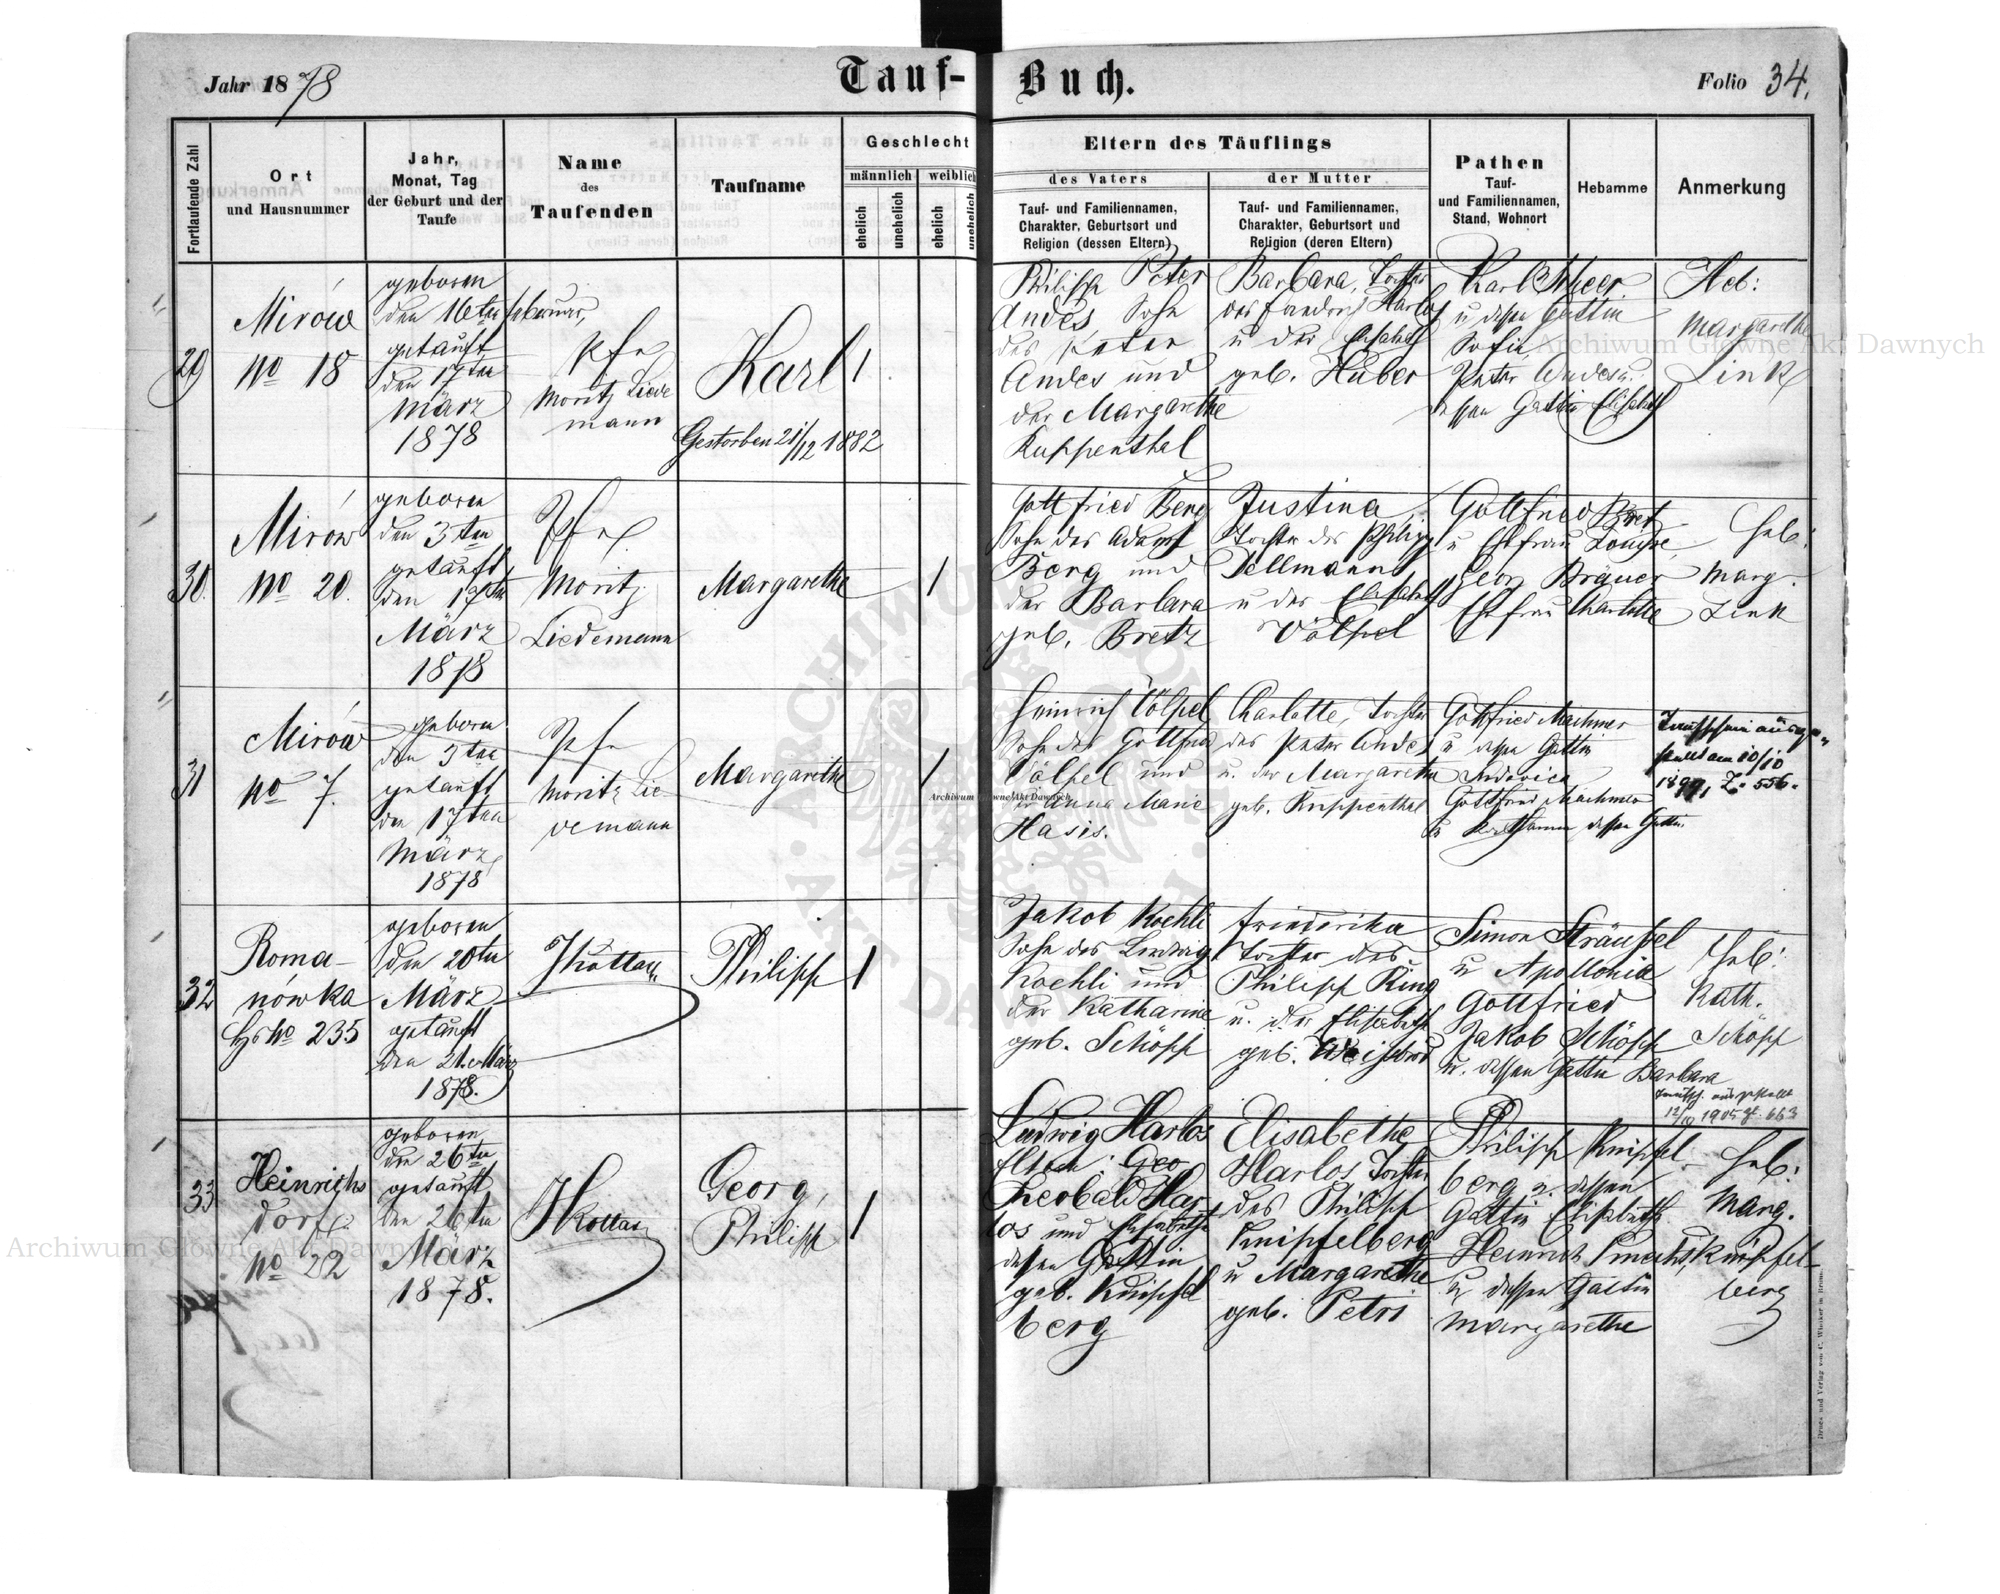 Jahr 1878
Tauf-Buch.
Folio 34.
Fortlaufende Zahl
Ort
und Hausnummer
Jahr,
Monat, Tag
der Geburt und der
Taufe
Name
des
Taufenden
Taufname
Geschlecht
männlich
weiblich
ehelich
unehelich
ehelich
unehelich
Eltern des Täuflings
des Vaters
Tauf- und Familiennamen,
Charakter, Geburtsort und
Religion (dessen Eltern)
der Mutter
Tauf- und Familiennamen,
Charakter, Geburtsort und
Religion (deren Eltern)
Pathen
Tauf-
und Familiennamen,
Stand, Wohnort
Hebamme
Anmerkung
29
Mirów
No 18
geboren
den 16ten Februar,
getauft
den 17ten
März
1878
Pfr
Moritz Liede
mann
Karl
Gestorben 21/12 1882
1
Philipp Peter
Andes, Sohn
des Peter
Andes und
der Margarethe
Kuppenthal
Barbara, Tochter
des Harlos
u der Elisabeth
geb. Huber
Karl Scheer
u dessen Gattin
Sofie,
Peter Andes u.
dessen Gattin Elisabeth
Heb:
Margarethe
Link
30.
Mirów
No 20.
geboren
den 3ten
getauft
den 17ten
März
1878
Pfr
Moritz
Liedemann
Margarethe
1
Gottfried Berg
Sohn des Adam
Berg und
der Barbara
geb. Bretz
Justina,
Tochter des Philipp
Dellmann
u der Elisabeth
Völpel
Gottfried Bretz
u Ehefrau Louise,
Georg Bräuer
Ehefrau Charlotte
Heb:
Marg.
Link
31
Mirów
No 7.
geboren
den 3ten
getauft
den 17ten
März
1878
Pfr
Moritz Lie
demann
Margarethe
1
Heinrich Völpel,
Sohn des Gottfried
Völpel und
der Anna Marie
Hasis.
Charlotte, Tochter
des Peter Andes
u. der Margarethe
geb. Kuppenthal
Gottfried Machmer
u dessen Gattin
Ludovica
Gottfried Machmer
u dessen Gattin
Taufschein ausge-
stellt am 10/10
Z. 556.
32
Roma-
nówka
Hs No 235
geboren
den 20ten
März
getauft
den 21. März
1878.
Philipp
1
Jakob Koehli
Sohn des Ludwig
Koehli und
der Katharine
geb. Schöpp
Friederika
Tochter des
Philipp Ring
u. der Elisabeth
geb.
Simon Sträussel
u Apollonia
Gottfried
Jakob Schöpp
u. dessen Gattin Barbara
Heb:
Kath.
Schöpp
Taufsch. ausgestellt
12/10 1905 Z. 663
33
Heinrichs
dorf
No 22
geboren
den 26ten
getauft
den 26ten
März
1878.
Georg,
Philipp
1
Ludwig Harlos
Eltern: Geo
Theobald Har-
los und Elisabethe
dessen Gattin
geb. Knipfel
berg
Elisabethe
Harlos Tochter
des Philipp
Knipfelberg
u Margarethe
geb. Petri
Philipp Knipfel-
berg u. dessen
Gattin Elisabeth
Heinrich
u dessen Gattin
Margarethe
Heb:
Marg.
Knipfel-
berg
Druck und Verlag von C. Winiker in Brünn.
Archiwum Główne Akt Dawnych
Archiwum Główne Akt Dawnych
Archiwum Główne Akt Dawnych